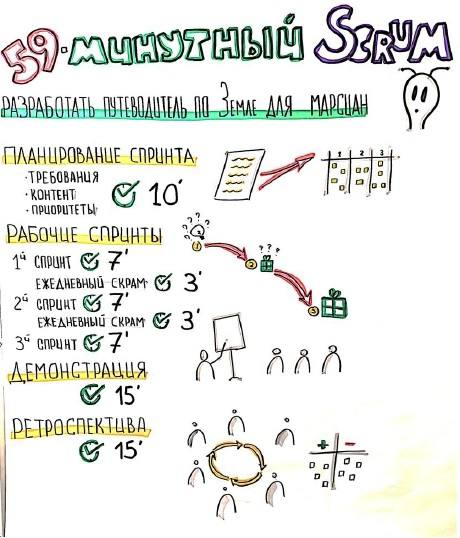 59-минутный Scrum
Разработать путеводитель по Земле для марсиан
Планирование спринта
· Требования
· Контент
· Приоритеты
10'
1 2 3
Рабочие спринты
1й спринт 7'
Ежедневный скрам 3'
2й спринт 7'
Ежедневный скрам 3'
3й спринт 7'
? ? ? ? ?
1
? ? ?
2
3
Демонстрация
15'
Ретроспектива
15'
+ -